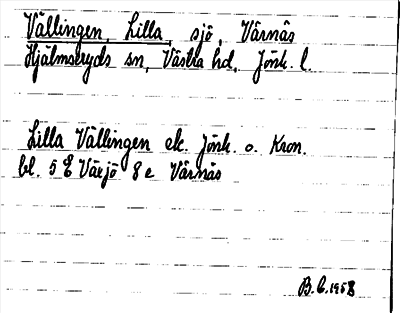 Vällingen, Lilla, sjö, Värnäs
Hjälmseryds sn, Västra hd, Jönk. l.
Lilla Vällingen ek. Jönk. o. Kron.
bl. 5 E Växjö 8 e Värnäs
B.E. 1958